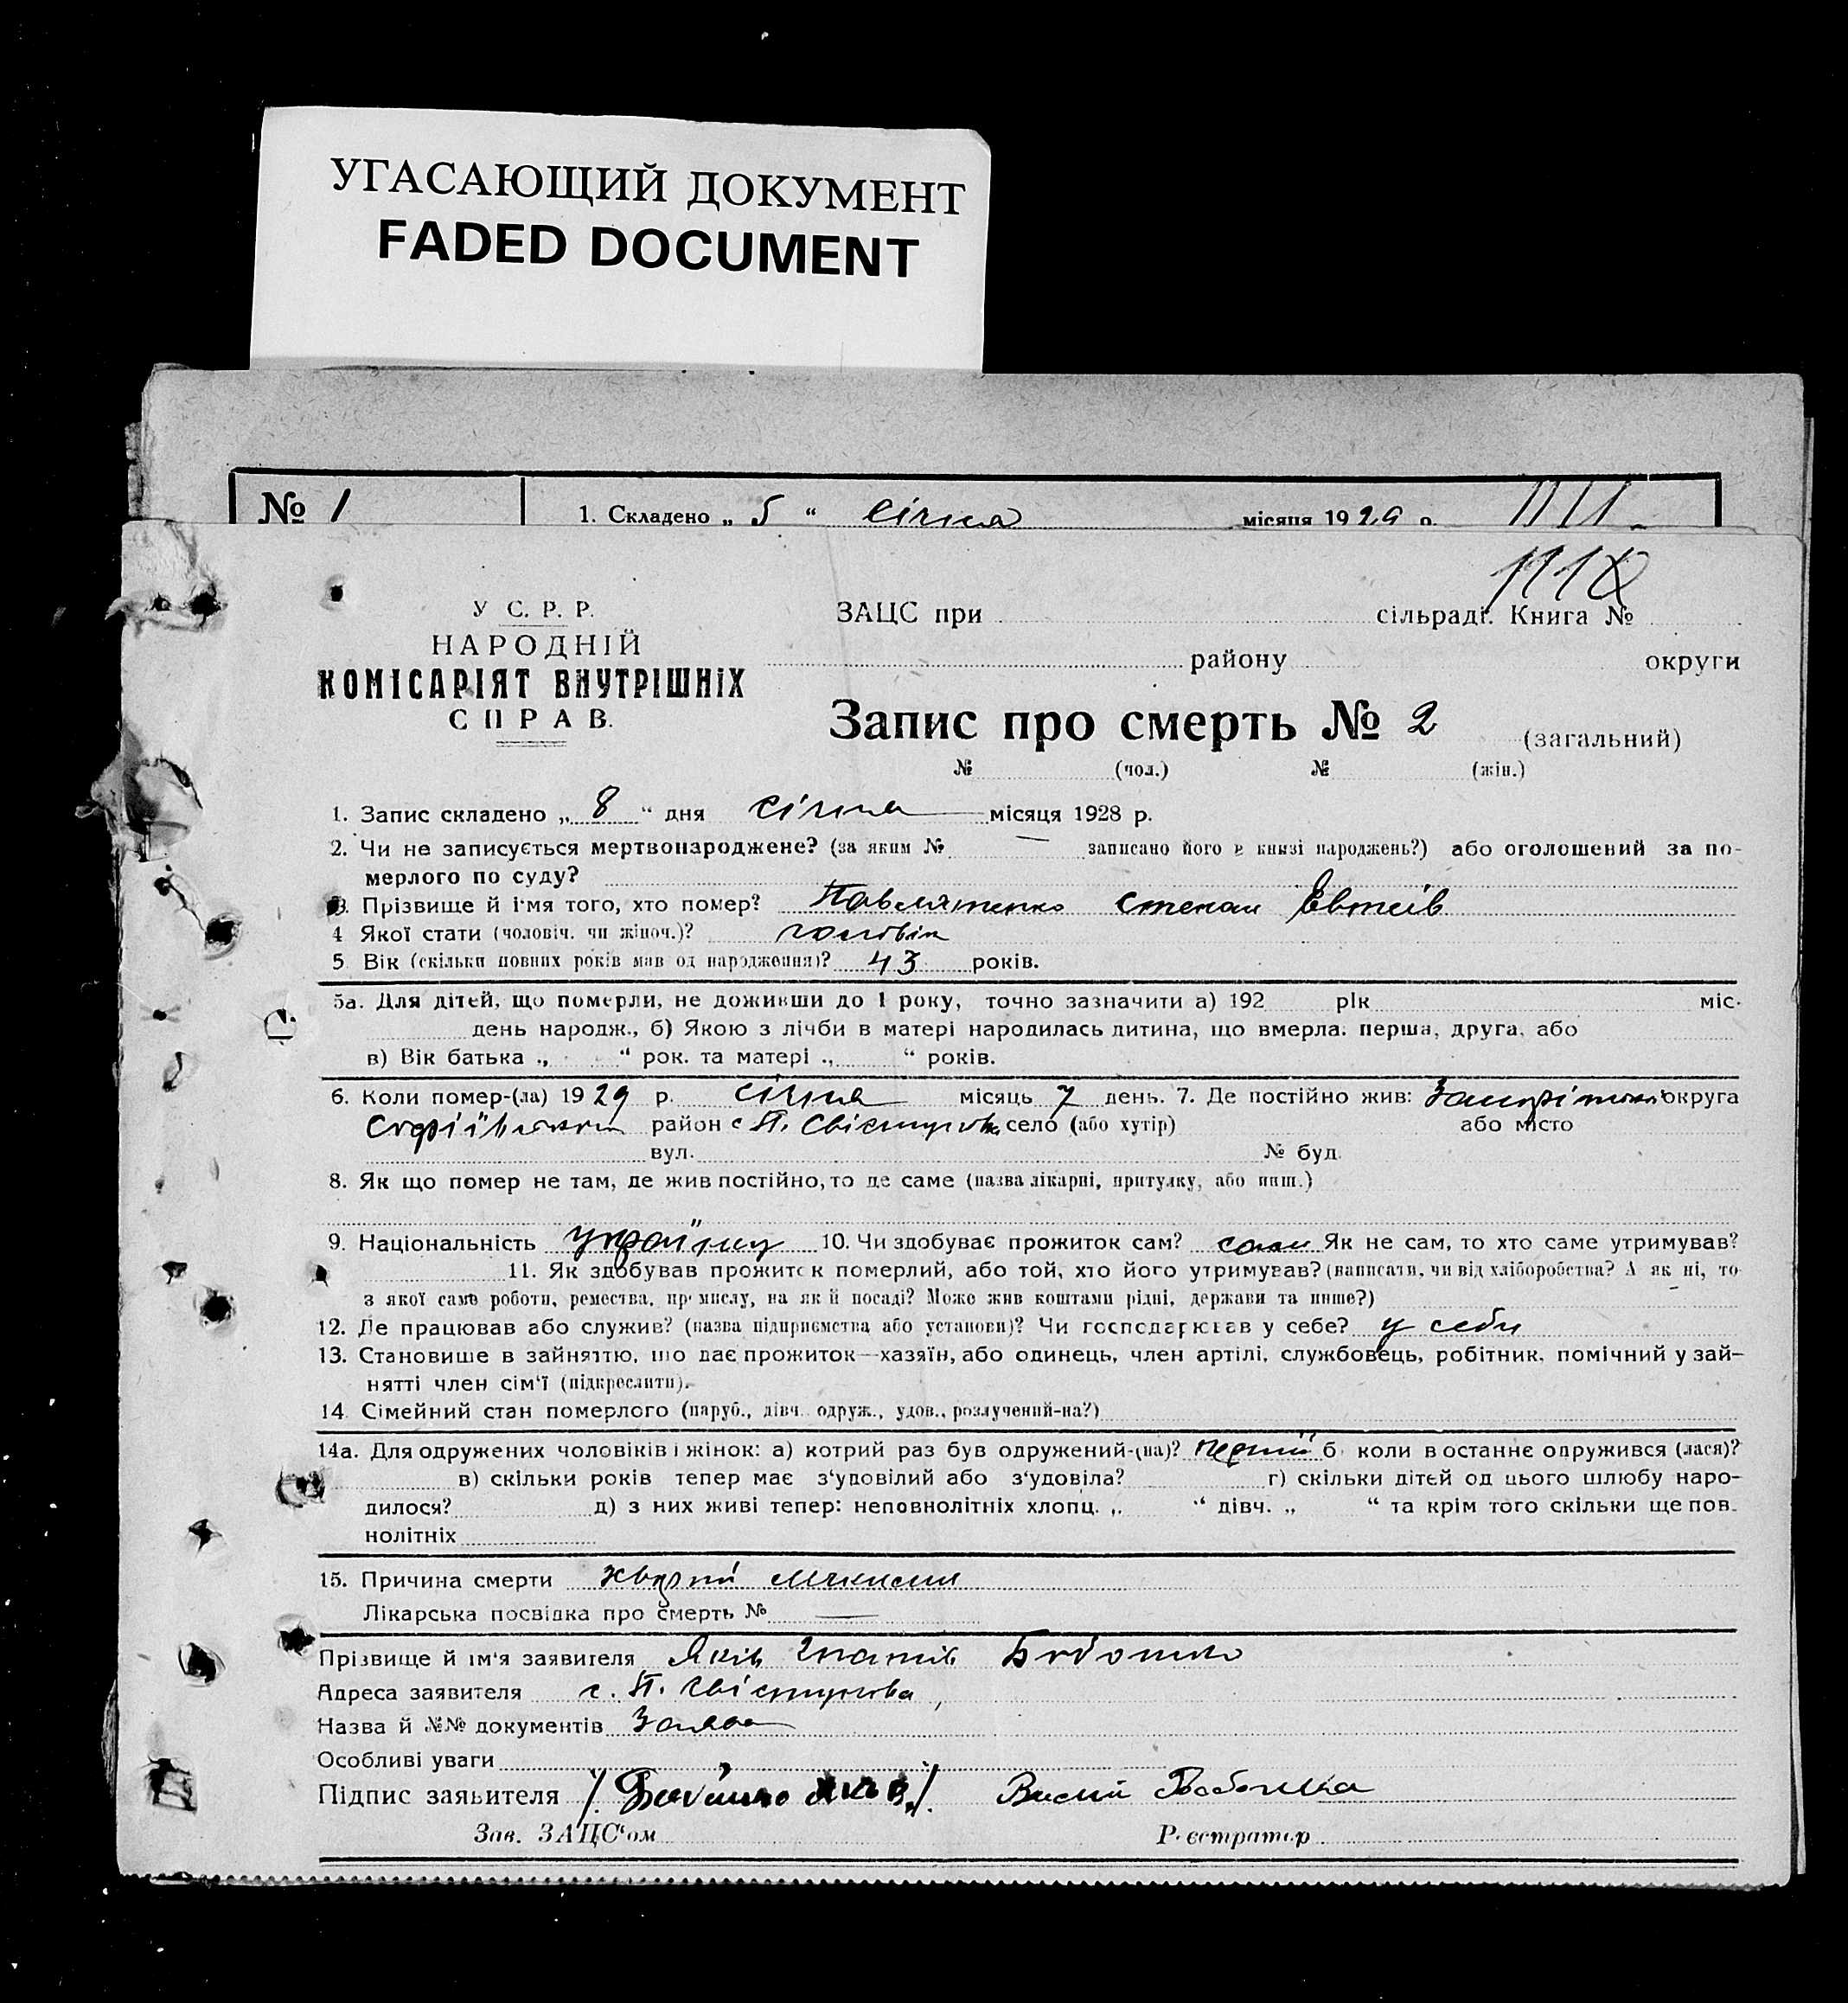 УГАСАЮЩИЙ ДОКУМЕНТ
FADED DOCUMENT
№ 1
1. Складено „ 5 “ січня місяця 1929 р.
У С. Р. Р.
НАРОДНІЙ
КОМІСАРІЯТ ВНУТРІШНІХ
СПРАВ.
ЗАЦС при сільраді. Книга №
району округи
Запис про смерть № 2 (загальний)
№ (чол.) № (жін.)
1. Запис складено „ 8 “ дня січня місяця 1928 р.
2. Чи не записується мертвонароджене? (за яким № — записано його в книзі народжень?) або оголошений за по-
мерлого по суду?
3. Прізвище й імя того, хто помер? Степан Евтеїв
4 Якої стати (чоловіч. чи жіноч.)? чоловік
5 Вік (скільки повних років мав од народження)? 43 років.
5а. Для дітей, що померли, не доживши до 1 року, точно зазначити а) 192 рік міс.
день народж., б) Якою з лічби в матері народилась дитина, що вмерла: перша, друга, або
в) Вік батька „ “ рок. та матері „ “ років.
6. Коли помер-(ла) 1929 р. січня місяць 7 день. 7. Де постійно жив: округа
Софіївського район с П. Свістунова село (або хутір) або місто
вул. № буд.
8. Як що помер не там, де жив постійно, то де саме (назва лікарні, притулку, або инш.)
9. Національність 10. Чи здобуває прожиток сам? сам Як не сам, то хто саме утримував?
11. Як здобував прожиток померлий, або той, хто його утримував? (написати, чи від хліборобства? А як ні, то
з якої саме роботи, ремества, промислу, на якій посаді? Може жив коштами рідні, держави та инше?)
12. Де працював або служив? (назва підприємства або установи)? Чи господарював у себе? у себи
13. Становище в зайняттю, що дає прожиток—хазяїн, або одинець, член артілі, службовець, робітник, помічний у зай-
нятті член сім‘ї (підкреслити).
14. Сімейний стан померлого (паруб., дівч. одруж., удов., розлучений-на?)
14а. Для одружених чоловіків і жінок: а) котрий раз був одружений-(на)? перший б) коли востаннє одружився (лася)?
в) скільки років тепер має з‘удовілий або з‘удовіла? г) скільки дітей од цього шлюбу наро-
дилося? д) з них живі тепер: неповнолітніх хлопц. „ “ дівч. „ “ та крім того скільки ще пов-
нолітніх
15. Причина смерти
Лікарська посвідка про смерть № —
Прізвище й ім‘я заявителя Яків
Адреса заявителя с. П. Свістунова,
Назва й №№ документів Заява
Особливі уваги
Підпис заявителя
Зав. ЗАЦС‘ом Реєстратор